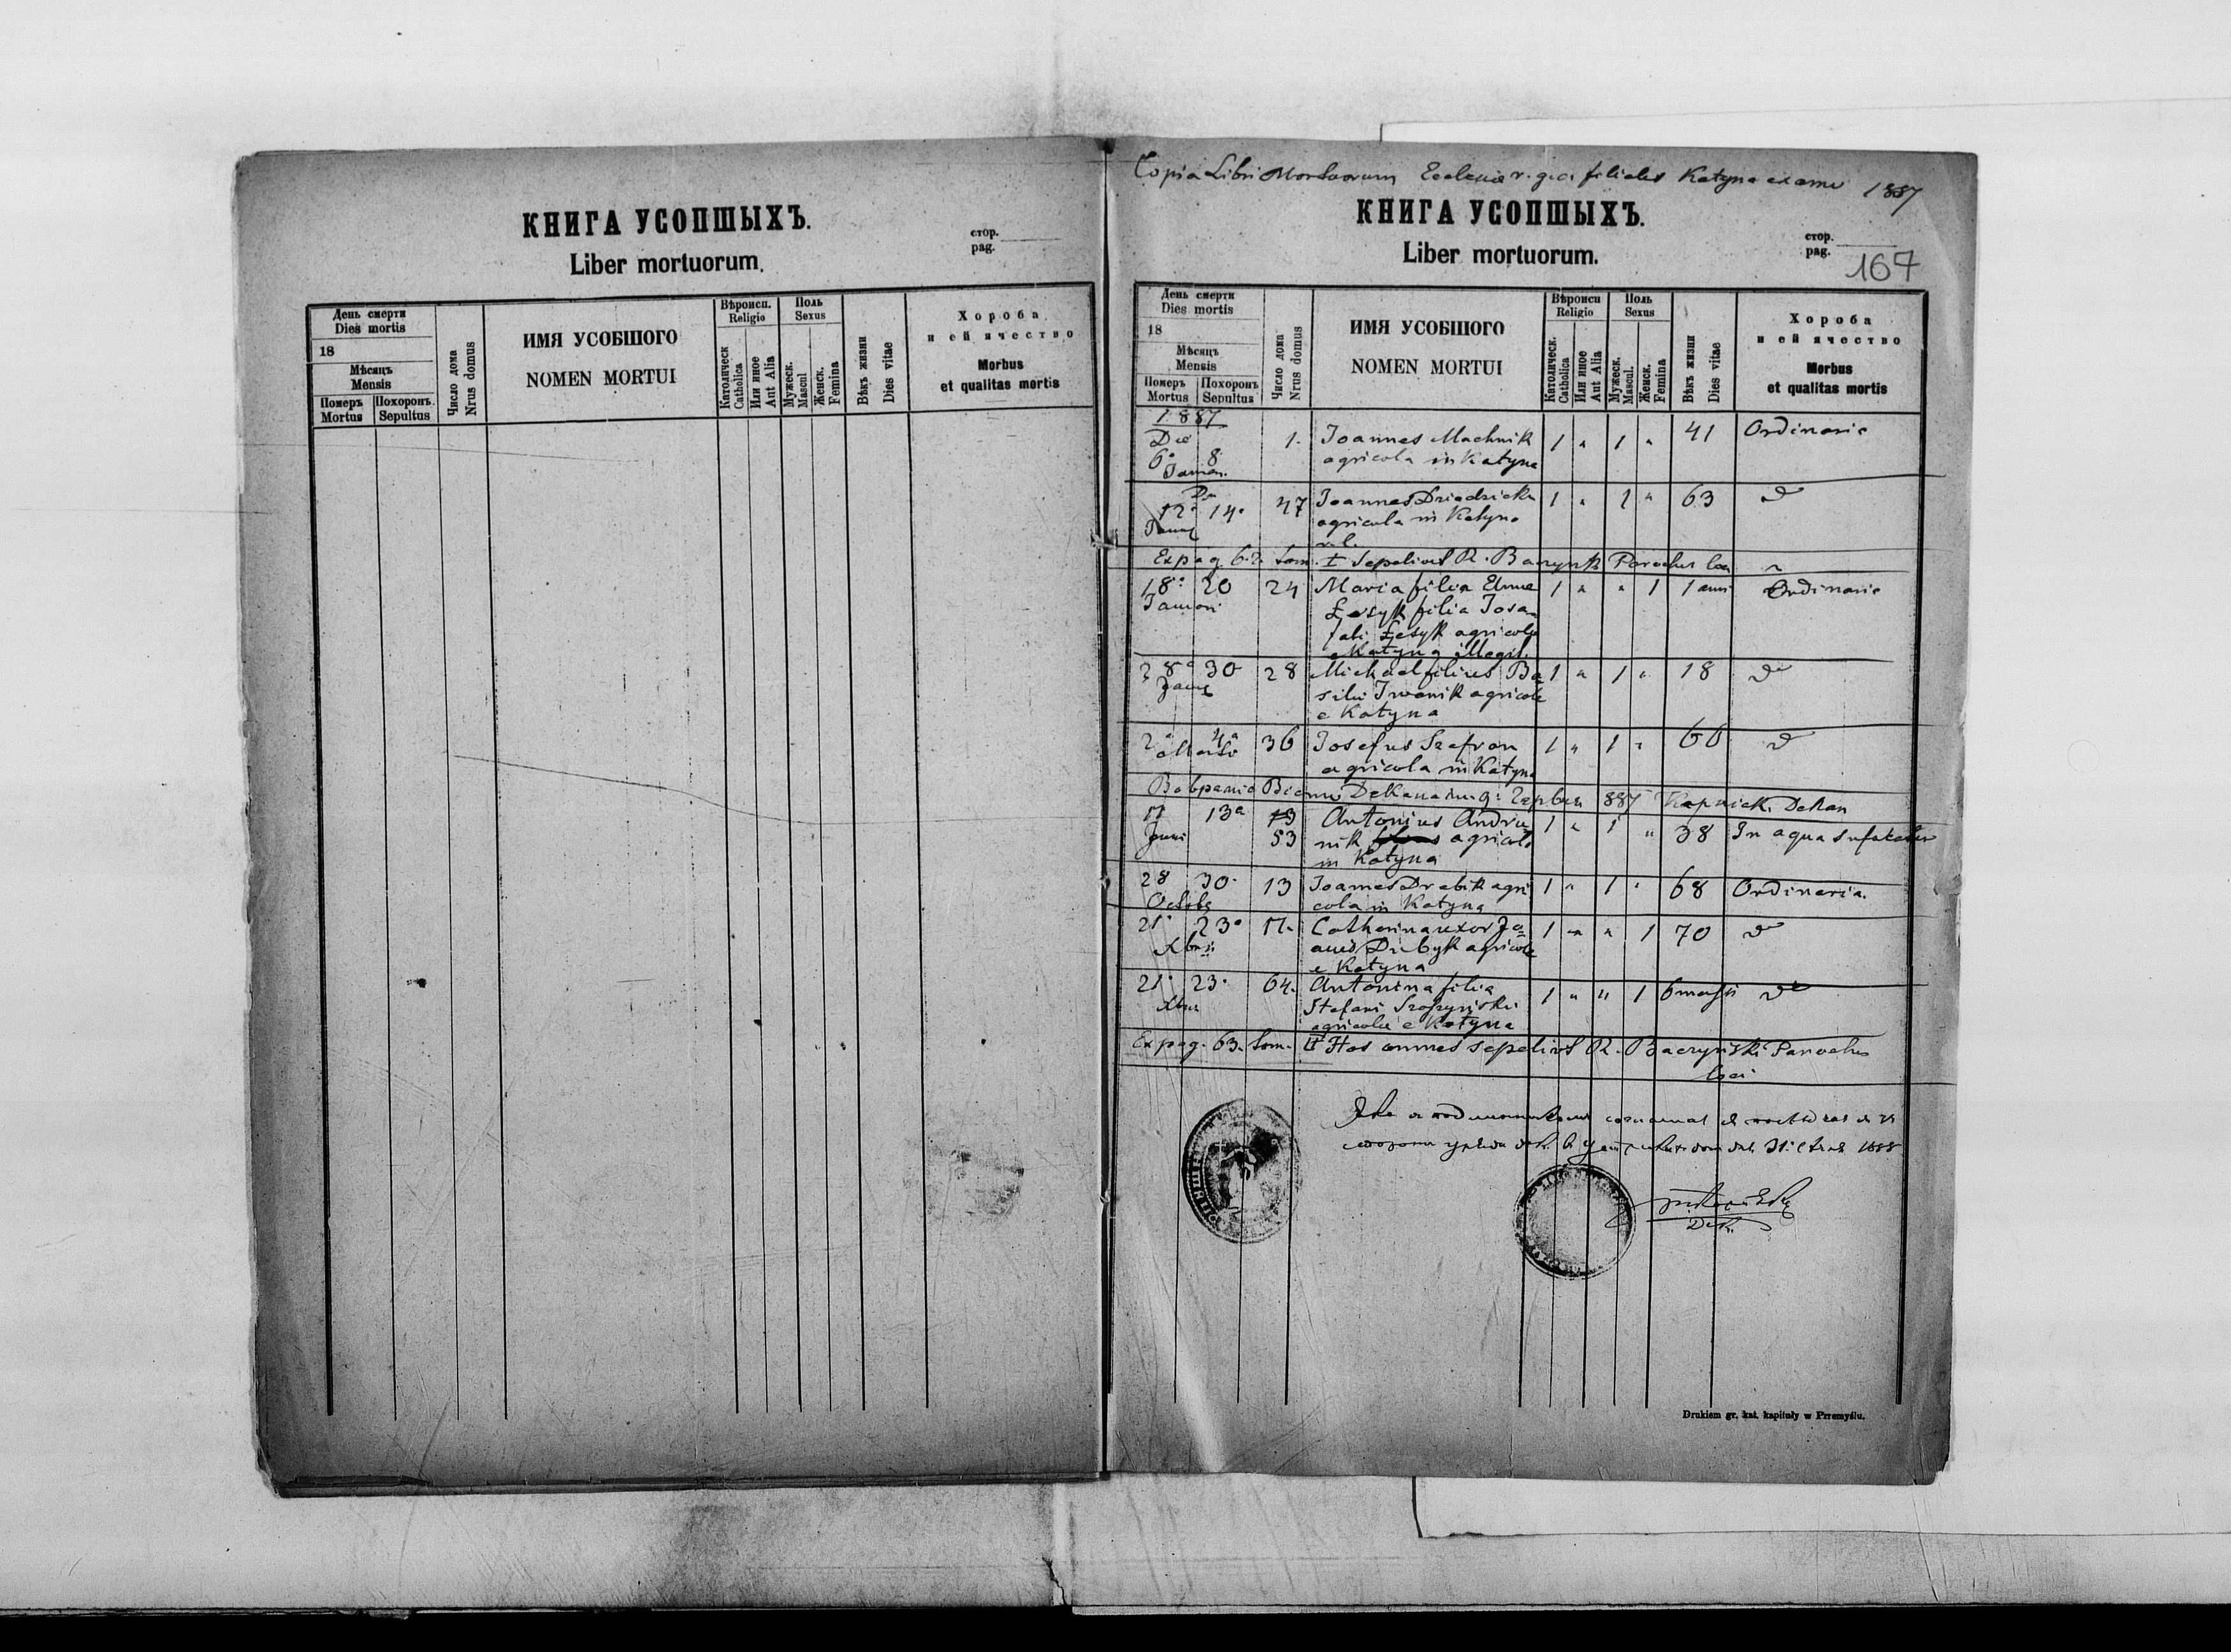 КНИГА УСОПШЫХЪ.
Liber mortuorum.
стор.
pag.
День смерти
Dies mortis
18
Мѣсяцъ
Mensis
Померъ
Mortus
Похоронъ.
Sepultus
Число дома
Nrus domus
ИМЯ УСОБШОГО
NOMEN MORTUI
Вѣроисп.
Religio
Католическ
Catholica
Или иное
Aut Alia
Поль
Sexus
Мужеск.
Mascul
Женск.
Femina
Вѣкъ жизни
Dies vitae
Хороба
и ей ячество
Morbus
et qualitas mortis
Copia Libri Mortuorum Ecclesiae r. g. c. filialis Katyna ex anno 1887
КНИГА УСОПШЫХЪ.
Liber mortuorum.
стор.
pag.
167
День смерти
Dies mortis
18
Мѣсяцъ
Mensis
Померъ
Mortus
Похоронъ
Sepultus
Число дома
Nrus domus
ИМЯ УСОБШОГО
NOMEN MORTUI
Вѣроисп
Religio
Католическ.
Catholica
Или иное
Aut Alia
Поль
Sexus
Мужеск.
Mascul.
Женск.
Femina
Вѣкъ жизни
Dies vitae
Хороба
и ей ячество
Morbus
et qualitas mortis
1887
Die
6a 8 1. Joannes Machnik 1 " 1 " 41 Ordinaria
Januar. agricola in Katyna
12a 14a 47 Joannes Dziedzicki 1 " 1 " 63 do
agricola in Katyna
Ex pag. 62 Tom. I sepelivit R. Baczyński Parochus loci
18a 20 24 Maria filia Annae 1 " " 1 1 anni Ordinaria
Januari Łesyk filia Josa
fati Łesyk agricolae
e Katyna illegit.
28a 30 28 Michael filius Ba 1 " 1 " 18 do
silii Iwanik agricolae
e Katyna
2a 4a 36 Josefus Szafran 1 " 1 " 66 do
Martii agricola in Katyna
887 Dekan
11 13a 53 Antonius Andru 1 " 1 " 38 In aqua sufocatus
Juni nik agricola
in Katyna
28 30 13 Joannes Drabik agri 1 " 1 " 68 Ordinaria.
Octobr cola in Katyna
21a 23a 11. Catharina uxor Jo 1 " " 1 70 do
Xbris annis Drabyk agricolae
e Katyna
21a 23a 64. Antonina filia 1 " " 1 6 mensis do
Xbris Stefani
agricolae e Katyna
Ex pag. 63. Tom. II Hos omnes sepelivit R. Baczyński Parochus
loci
1888
Dek.
Drukiem gr. kat. kapituły w Przemyślu.